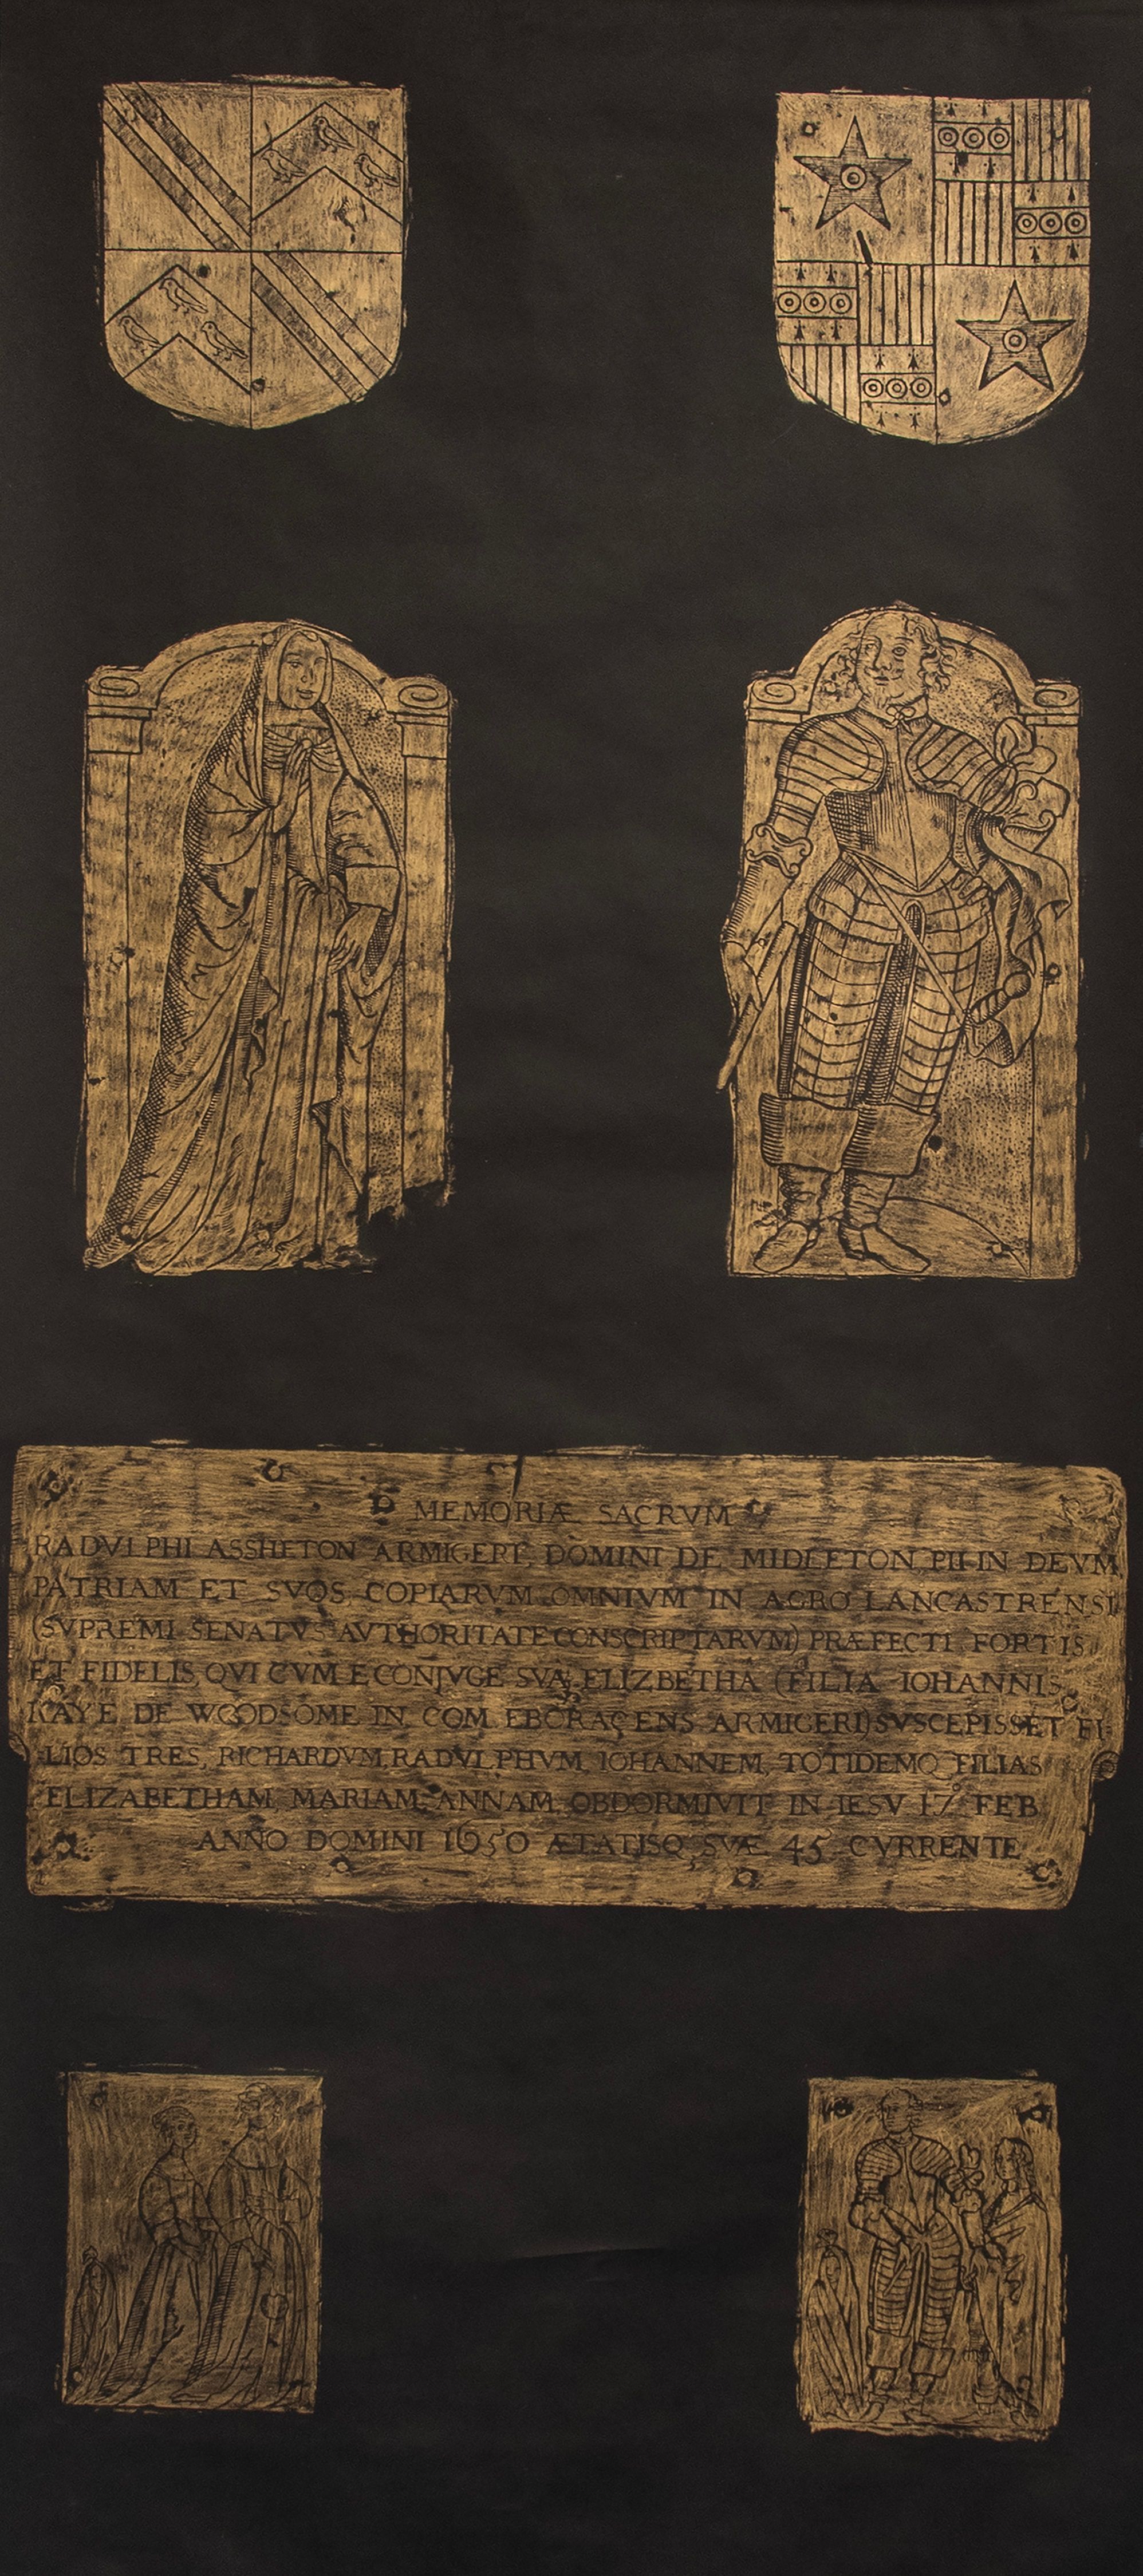 MEMORIÆ SACRVM
RADVLPHI ASSHETON ARMIGERI, DOMINI DE MIDLETON, PII IN DEVM,
PATRIAM ET SVOS, COPIARVM OMNIVM IN AGRO LANCASTRENSI
(SVPREMI SENATVS AVTHORITATE CONSCRIPTARVM) PRÆFECTI FORTIS
ET FIDELIS, QVI CVM E CONJVGE SVA ELIZBETHA (FILIA IOHANNIS
KAYE DE WOODSOME IN COM EBORAC ENS ARMIGERI) SVSCEPISSET FI-
LIOS TRES, RICHARDVM, RADVLPHVM, IOHANNEM, TOTIDEMQ FILIAS
ELIZABETHAM, MARIAM, ANNAM, OBDORMIVIT IN IESV 17º FEB
ANNO DOMINI 1650 ÆTATISQ SVÆ 45 CVRRENTE